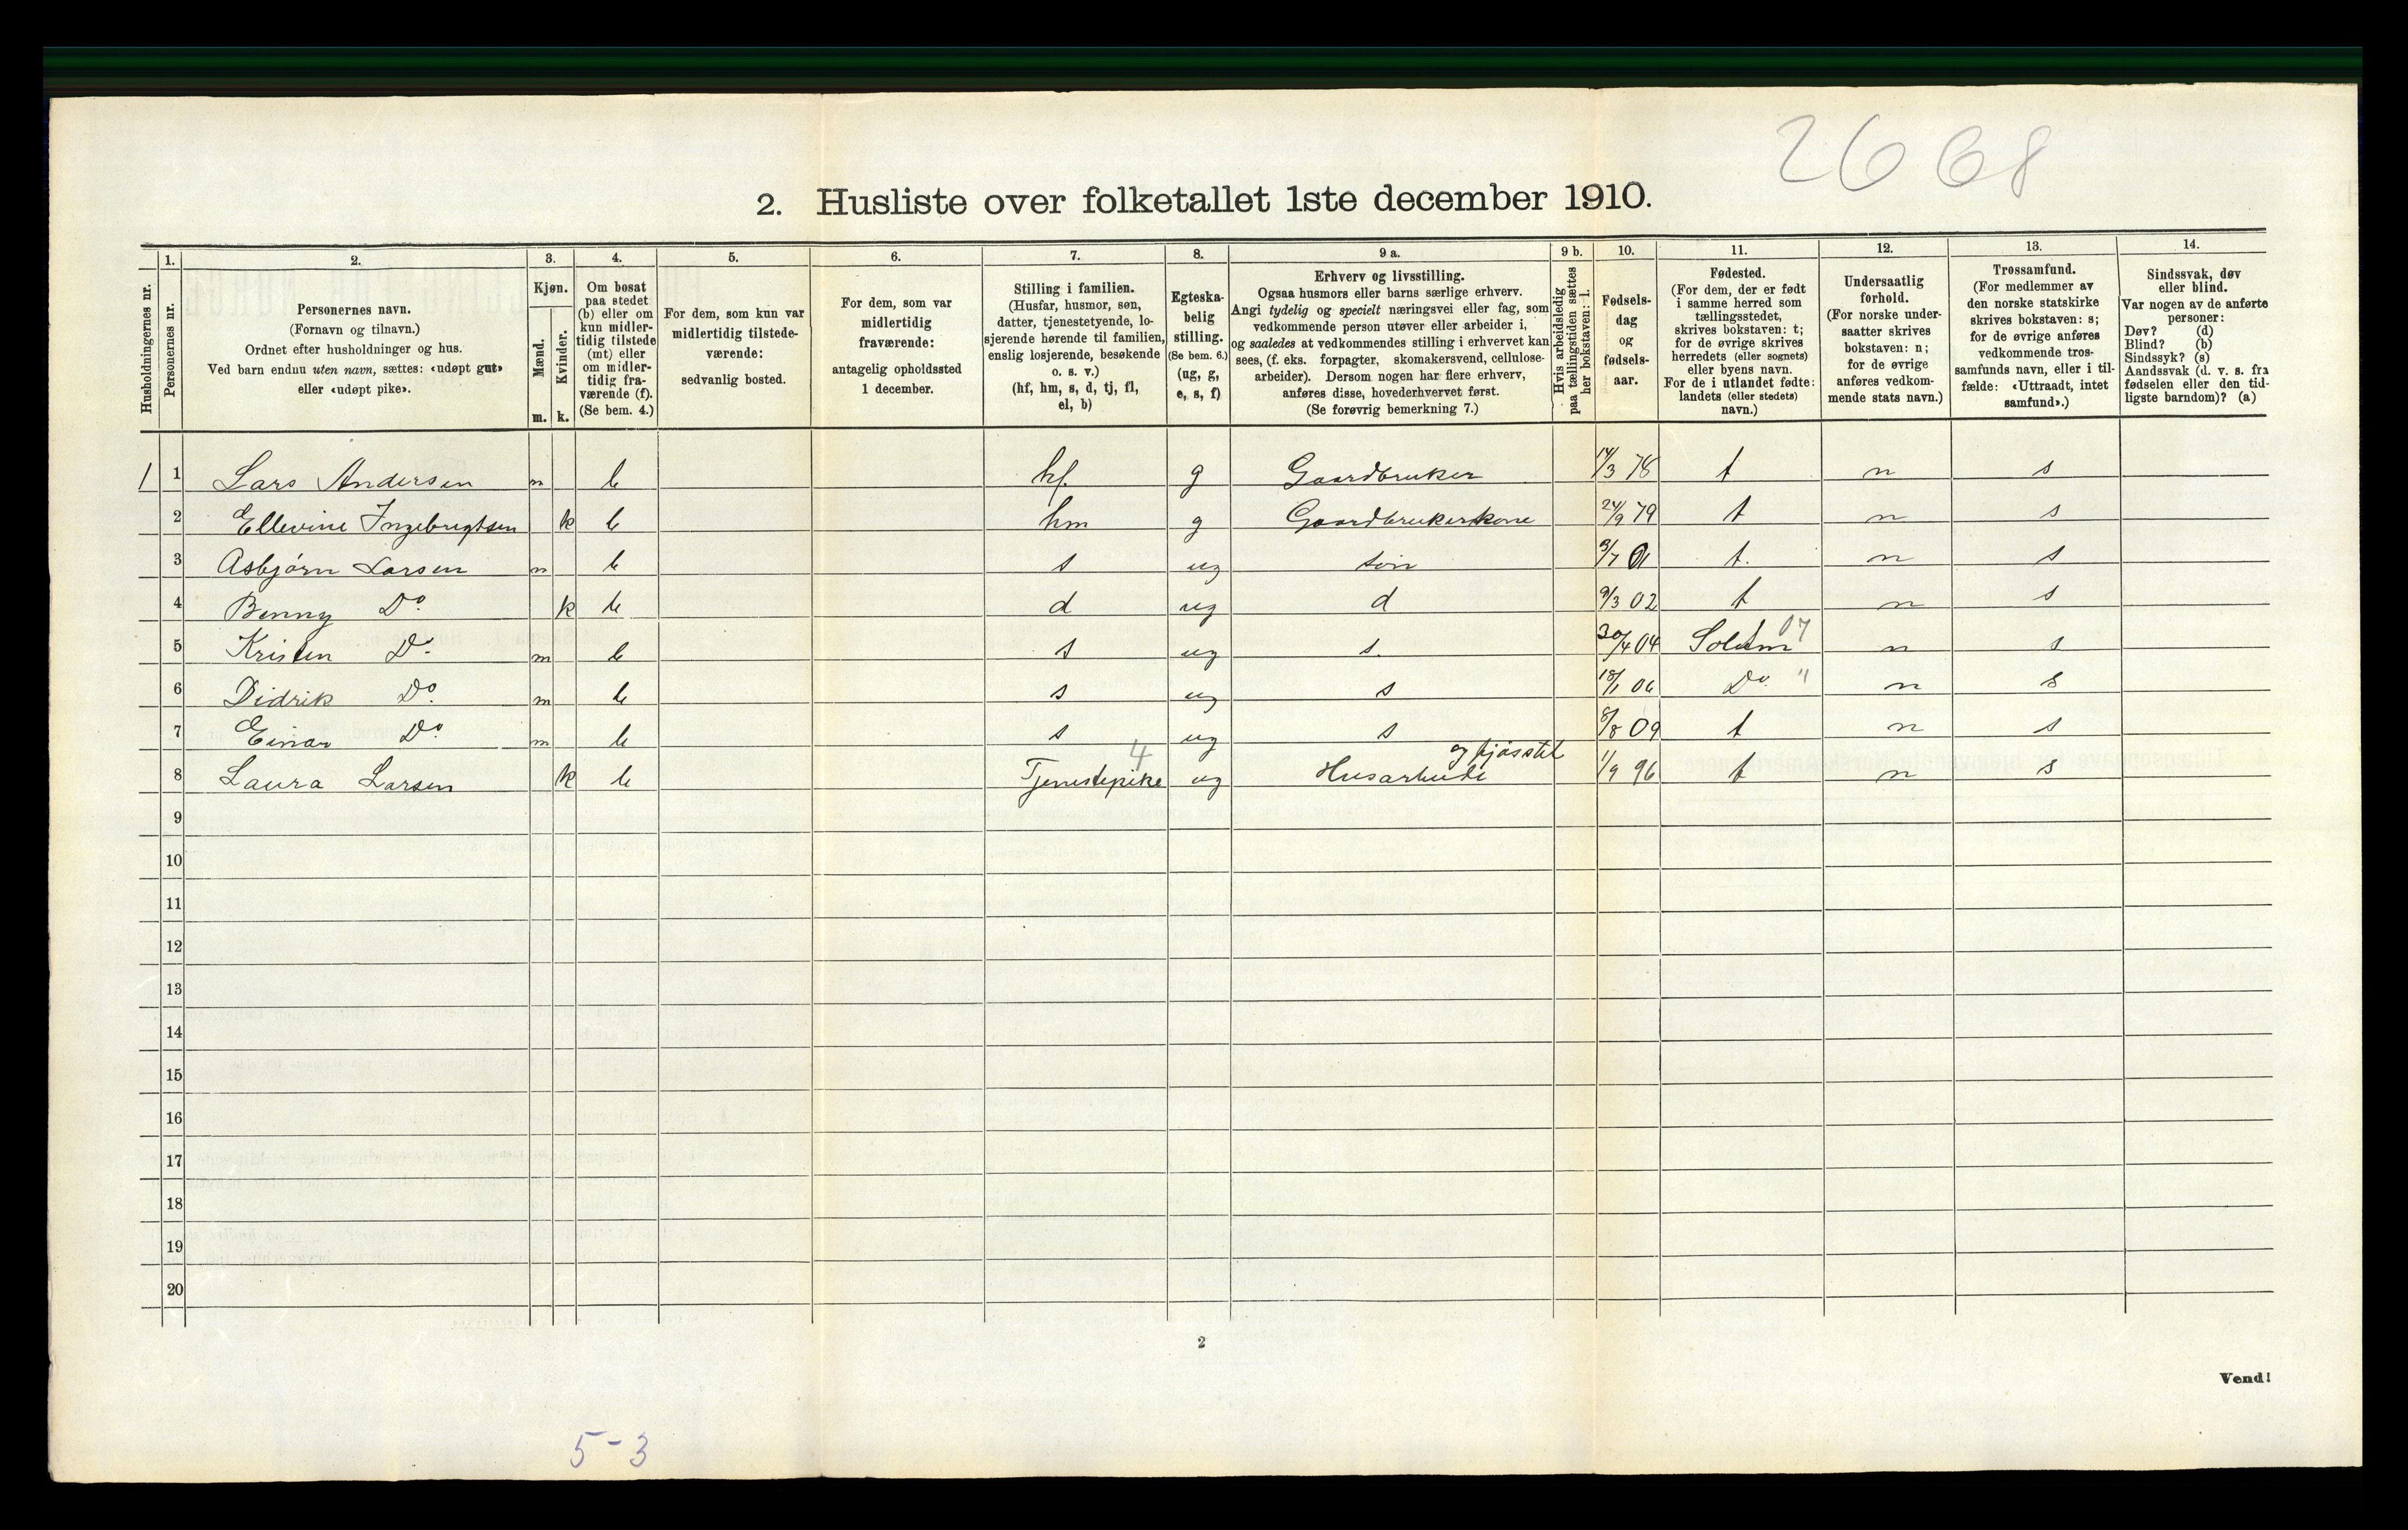 2668
2. Husliste over folketallet 1ste december 1910.
Husholdningernes nr.
1. Personernes nr.
2. Personernes navn. (Fornavn og tilnavn.) Ordnet efter husholdninger og hus. Ved barn endnu uten navn, sættes: «udøpt gut» eller «udøpt pike».
3. Kjøn. Mænd. m. Kvinder. k.
4. Om bosat paa stedet (b) eller om kun midlertidig tilstede (mt) eller om midlertidig fraværende (f). (Se bem. 4.)
5. For dem, som kun var midlertidig tilstedeværende: sedvanlig bosted.
6. For dem, som var midlertidig fraværende: antagelig opholdssted 1 december.
7. Stilling i familien. (Husfar, husmor, søn, datter, tjenestetyende, losjerende hørende til familien, enslig losjerende, besøkende o. s. v.) (hf, hm, s, d, tj, fl, el, b)
8. Egteskabelig stilling. (Se bem. 6.) (ug, g, e, s, f)
9 a. Erhverv og livsstilling. Ogsaa husmors eller barns særlige erhverv. Angi tydelig og specielt næringsvei eller fag, som vedkommende person utøver eller arbeider i, og saaledes at vedkommendes stilling i erhvervet kan sees, (f. eks. forpagter, skomakersvend, cellulosearbeider). Dersom nogen har flere erhverv, anføres disse, hovederhvervet først. (Se forøvrig bemerkning 7.)
9 b. Hvis arbeidsledig paa tællingstiden sættes her bokstaven: l.
10. Fødselsdag og fødselsaar.
11. Fødested. (For dem, der er født i samme herred som tællingsstedet, skrives bokstaven: t; for de øvrige skrives herredets (eller sognets) eller byens navn. For de i utlandet fødte: landets (eller stedets) navn.)
12. Undersaatlig forhold. (For norske undersaatter skrives bokstaven: n; for de øvrige anføres vedkommende stats navn.)
13. Trossamfund. (For medlemmer av den norske statskirke skrives bokstaven: s; for de øvrige anføres vedkommende trossamfunds navn, eller i tilfælde: «Uttraadt, intet samfund».)
14. Sindssvak, døv eller blind. Var nogen av de anførte personer: Døv? (d) Blind? (b) Sindssyk? (s) Aandssvak (d. v. s. fra fødselen eller den tidligste barndom)? (a)
1 1 Lars Andersen m b hf. g Gaardbruker 14/3 78 t n s
2 Ellevine Ingebregtsen k b hm g Gaardbrukerkone 24/9 79 t n s
3 Asbjørn Larsen m b s ug søn 9/7 01 t. n s
4 Benny Do. k b d ug d 9/3 02 t n s
5 Kristen Do. m b s ug s. 30/4 04 Solum 07 n s
6 Didrik Do. m b s ug s 18/1 06 Do. " n s
7 Einar Do m b s ug s 8/8 09 t n s
8 Laura Larsen k b Tjenestepike 4 ug Husarbeide og fjøsstel 1/9 96 t n s
9
10
11
12
13
14
15
16
17
18
19
20
2
Vend!
5-3